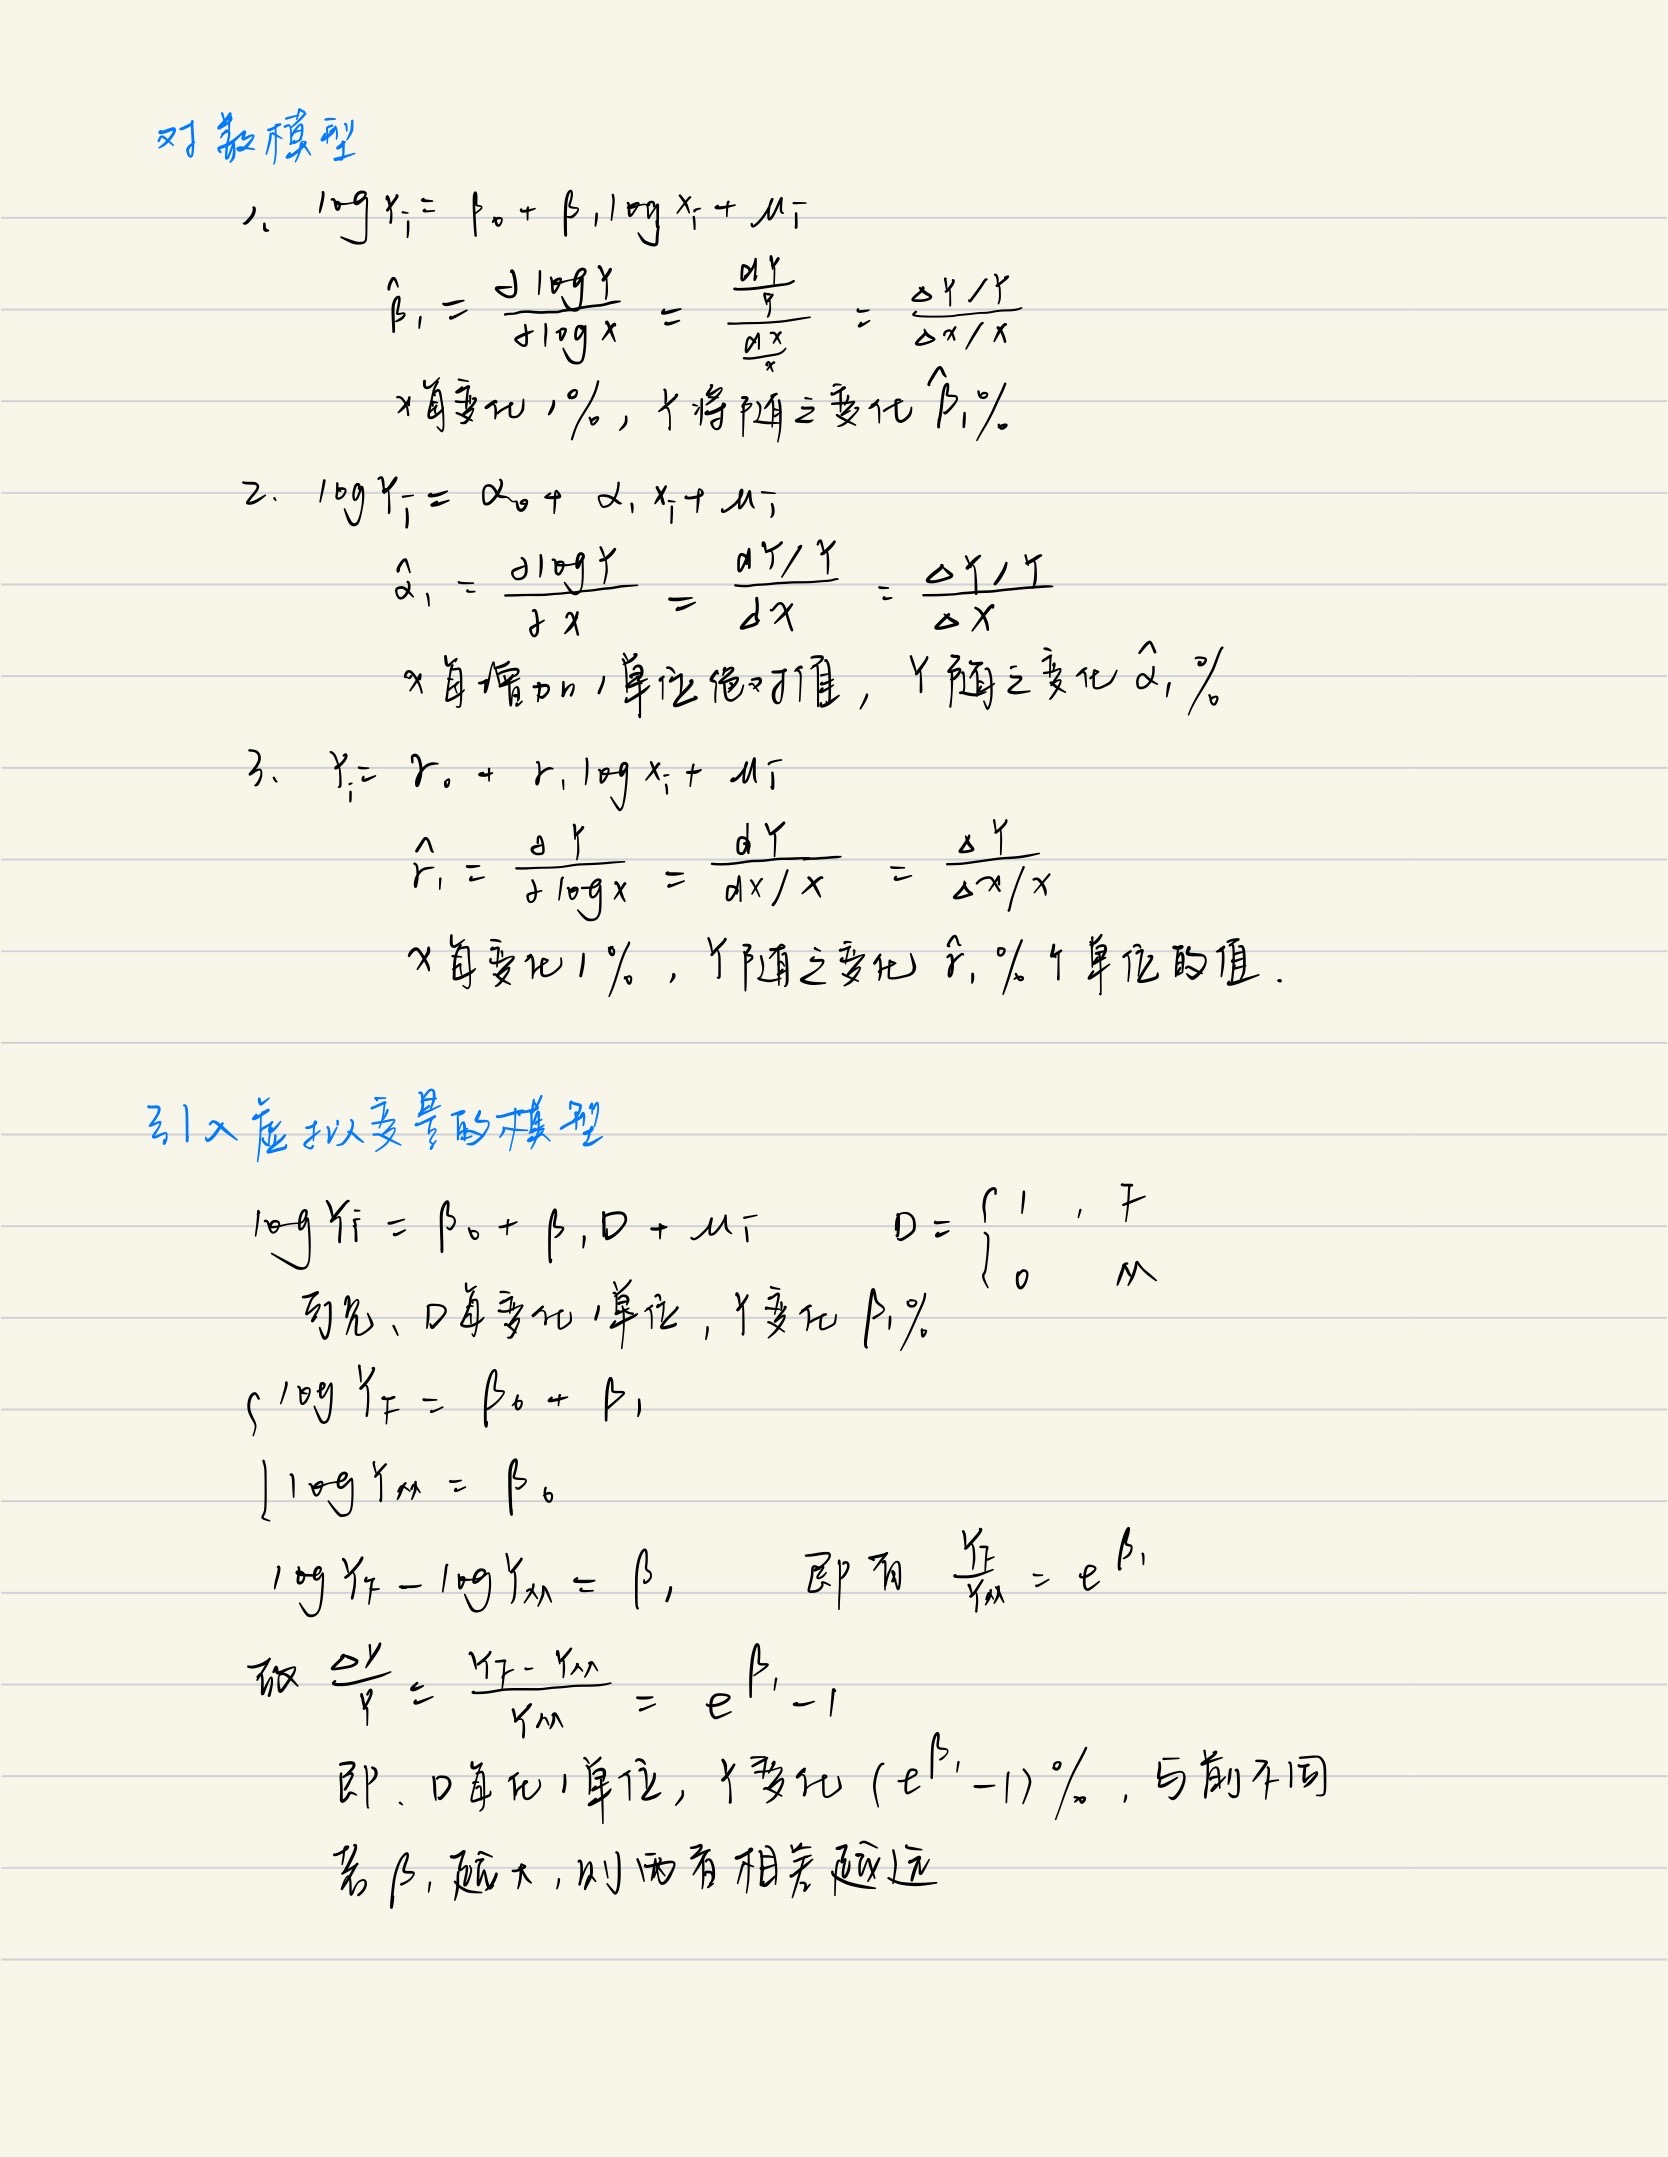 对数模型
1. log Yi = β0 + β1 log Xi + μi
β̂1 = ∂log Y / ∂log X = (dY/Y) / (dX/X) = (ΔY/Y) / (ΔX/X)
X每变化1%, Y将随之变化 β̂1%
2. log Yi = α0 + α1 Xi + μi
α̂1 = ∂log Y / ∂X = (dY/Y) / dX = (ΔY/Y) / ΔX
X每增加1单位绝对值, Y随之变化 α̂1%
3. Yi = γ0 + γ1 log Xi + μi
γ̂1 = ∂Y / ∂log X = dY / (dX/X) = ΔY / (ΔX/X)
X每变化1%, Y随之变化 γ̂1% 个单位的值.
引入虚拟变量的模型
log Yi = β0 + β1D + μi D = { 1, F
0 M
可见、D每变化1单位, Y变化 β1%
{ log YF = β0 + β1
log YM = β0
log YF - log YM = β1 即有 YF/YM = e^β1
故 ΔY/Y = (YF - YM)/YM = e^β1 - 1
即、D每化1单位, Y变化 (e^β1 - 1)%, 与前不同
若 β1 越大, 则两者相差越远